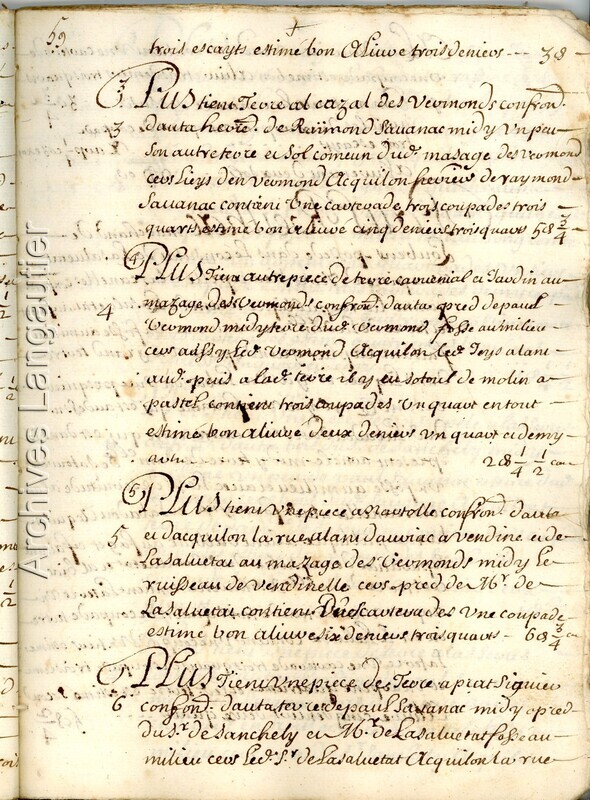 59
trois escayts estimé bon A Livre trois deniers 38
3 PLus tient Terre al cazal des Vermonds confron.
3 dauta herer. de Raimond Savanac midy Un peu
son autre terre et Sol comeun dud. masage des vermond
cers Lieys den vermond Acquilon herers de raymond
Savanac contient Une carterade trois coupades trois
quarts estimé bon a livre cinq deniers trois quars 58 3/4
4 PLus Tient autre piece de terre et Jardin au
4 mazage des Vermonds confron. dauta pred de paul
Vermond midy terre dud. Vermond fosse au milieu
cers aussy Led. vermond Acquilon
puis a lad. terre il y en de molin a
pastel contient trois coupades Un quart en tout
estimé bon a livre deux deniers un quart et demy
28 1/4 1/2
5 PLus tient Une piece a confron. dauta
5 et dacquilon la rue alant dauriac a Vendine et de
Lasalvetat au mazage des vermonds midy Le
ruisseau de Vendinelle cers pred de Mr. de
Lasalvetat contient Dues carterades Une coupade
estimé bon a livre six deniers trois quarts 68 3/4
6 PLus Tient Une piece de Terre a prat Siguier
6 confron. dauta terre de paul Savanac midy pred
du Sr. de Sanchely et Mr. de Lasalvetat fosse au
milieu cers Led. Sr. de Lasalvetat Acquilon la rue
Archives Langautier